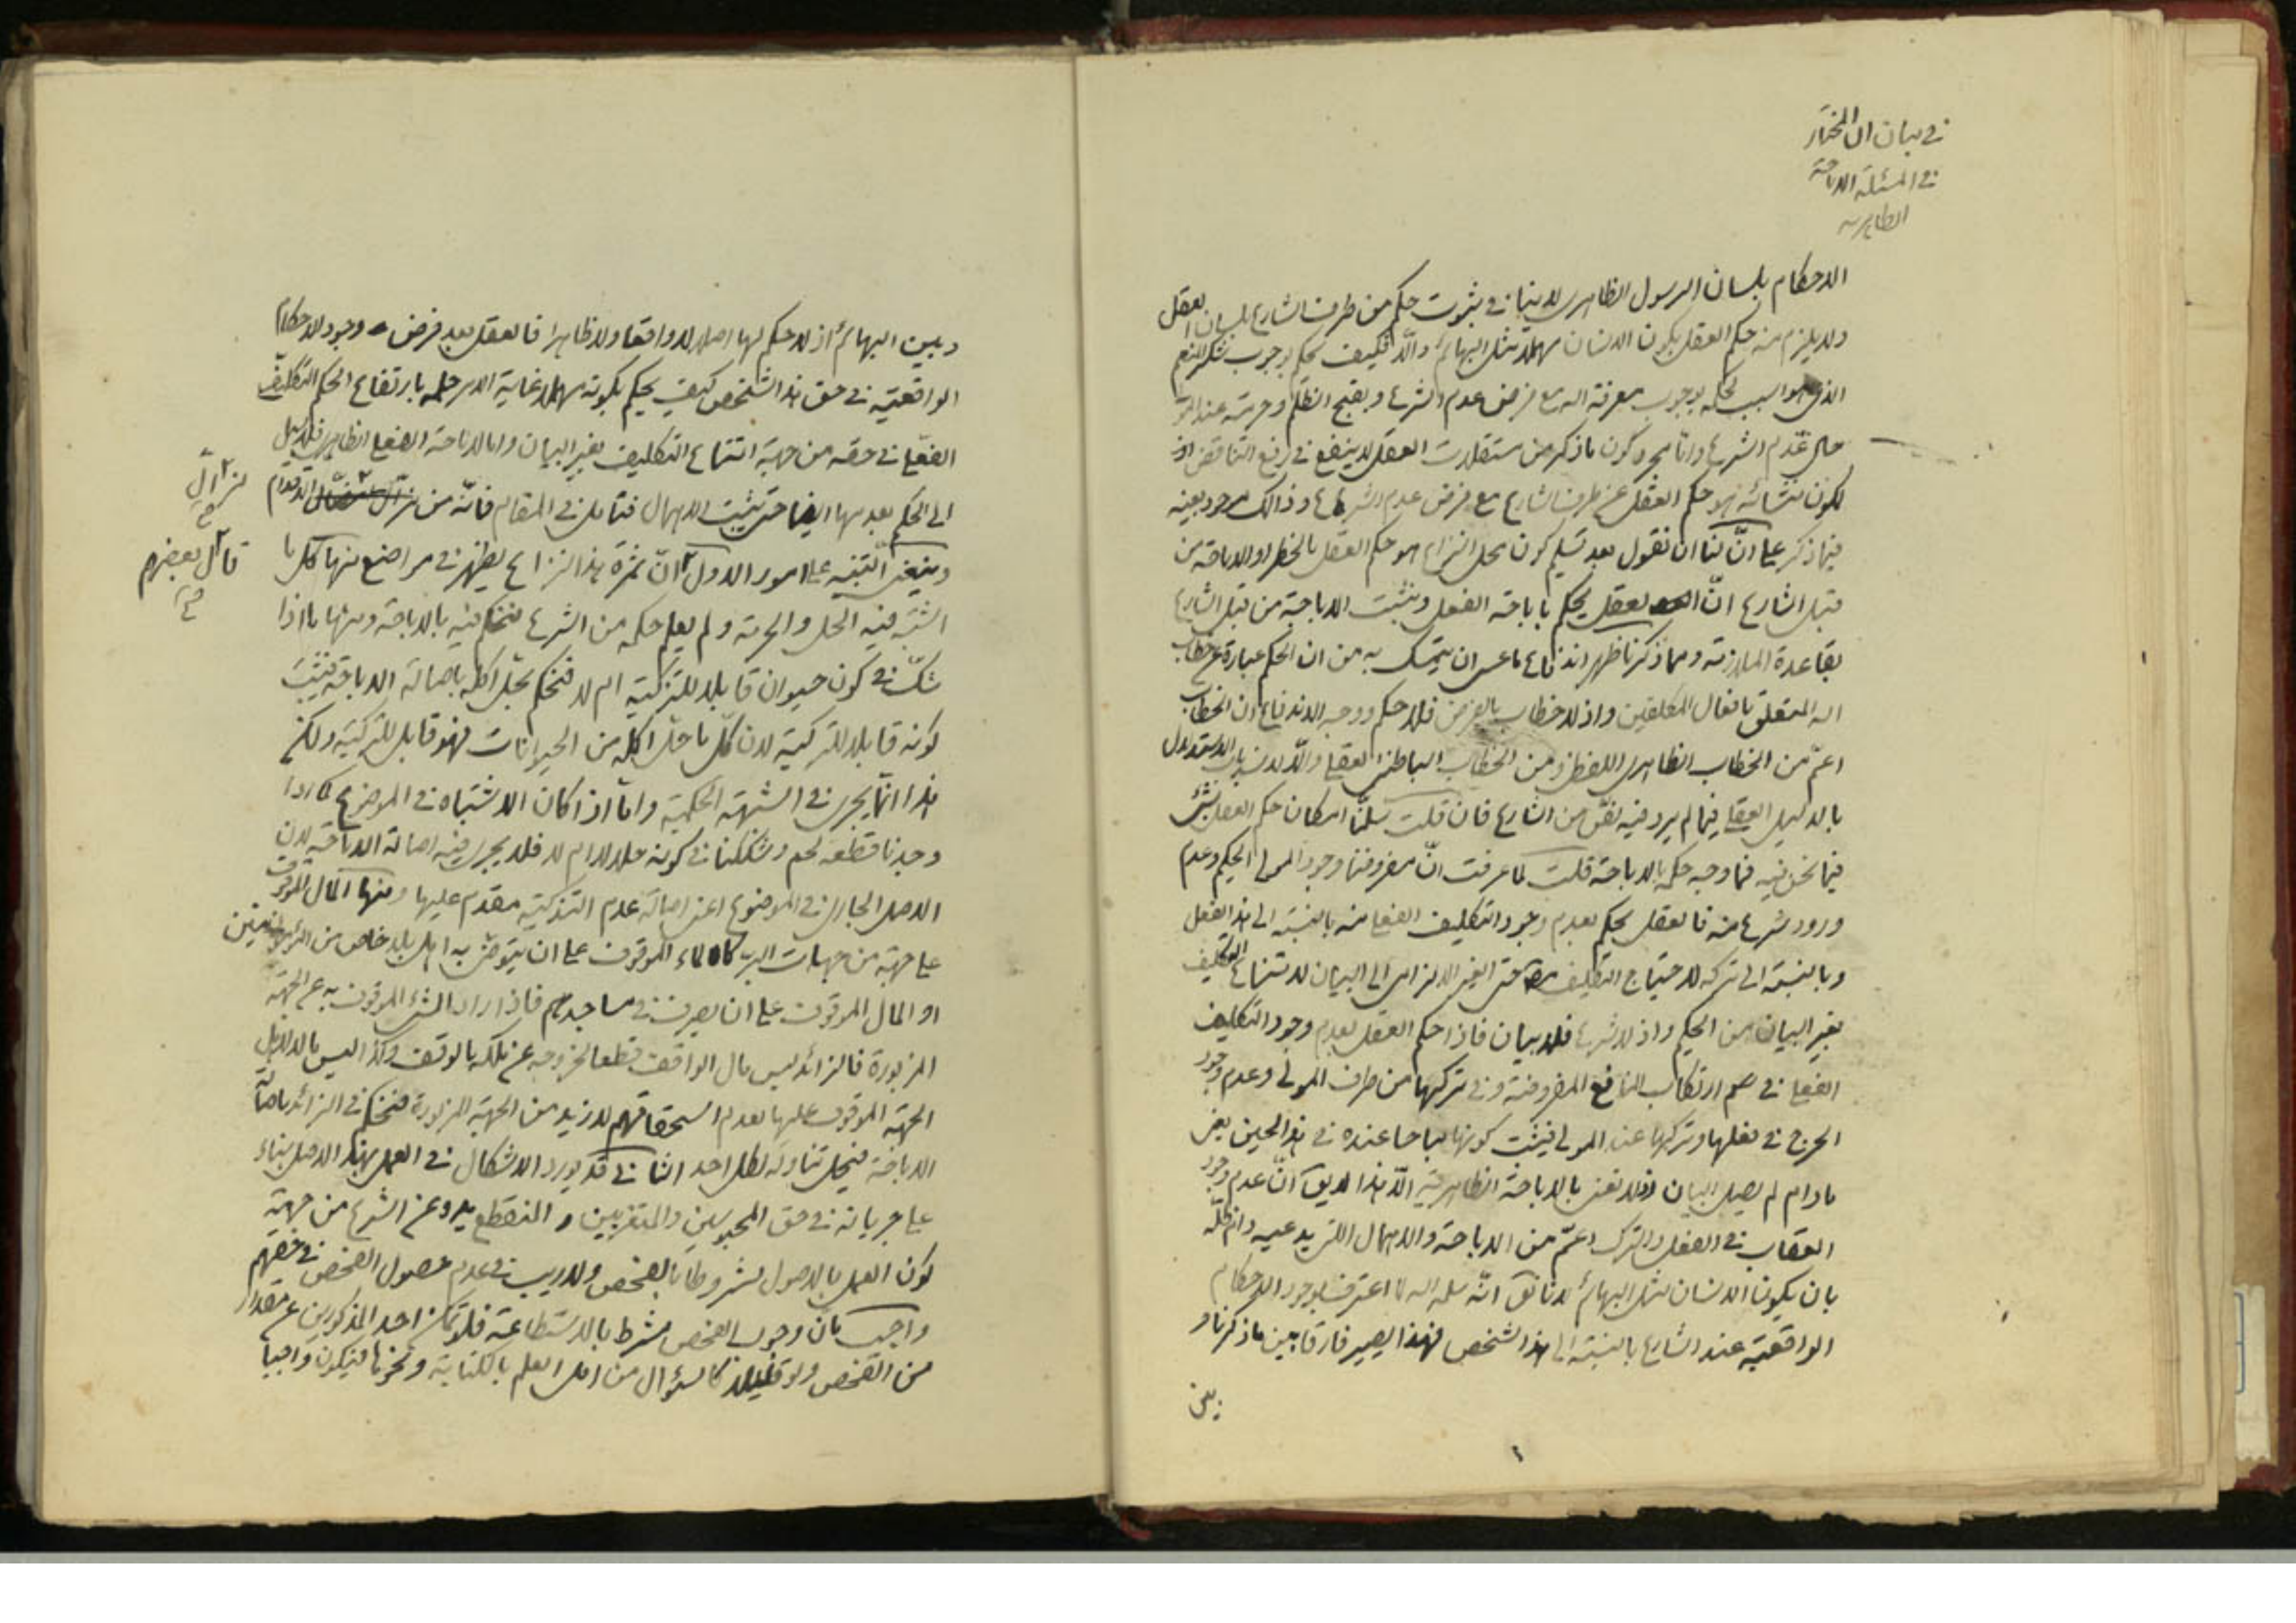 في بيان ان المختار
في المسئلة الاباحة
الظاهرية
الاحكام بلسان الرسول الظاهري لا ينافي ثبوت حكم من طرف الشارع بلسان العقل
ولا يلزم من حكم العقل بكون الانسان مهملا مثل البهائم والا فكيف يحكم بوجوب شكر المنعم
الذي هو السبب لحكمه بوجوب معرفة الله مع فرض عدم الشرع وبقبح الظلم وحرمته عند
حال عدم الشرع واما مجرد كون ما ذكر من مستقلات العقل لا ينفع في رفع التناقض اذ
لكون منشائه هو حكم العقل عن طرف الشارع مع فرض عدم الشرع وذالك موجود بعينه
فيما ذكر على انّ لنا ان نقول بعد تسليم كون محل النزاع هو حكم العقل بالحظر او الاباحة من
قبل الشارع انّ العقل يحكم باباحة الفعل ويثبت الاباحة من قبل الشارع
بقاعدة الملازمة ومما ذكرنا ظهر اندفاع ما عسى ان يتمسك به من ان الحكم عبارة عن خطاب
الله المتعلق بافعال المكلفين واذ لا خطاب بالفرض فلا حكم ووجه الاندفاع ان الخطاب
اعمّ من الخطاب الظاهري اللفظي ومن الخطاب الباطني العقلي والا لانسد باب الاستدلال
بالدليل العقلي فيما لم يرد فيه نصّ من الشارع فان قلت سلّمنا امكان حكم العقل بشئ
فيما نحن فيه فما وجه حكمه بالاباحة قلت لما عرفت انّ مفروضنا وجود المولى الحكيم وعدم
ورود شرع منه فالعقل يحكم بعدم وجود التكليف الفعلي منه بالنسبة الى هذا الفعل
وبالنسبة الى تركه لاحتياج التكليف حتى الغير الالزامي الى البيان لامتناع التكليف
بغير البيان من الحكيم واذ لا شرع فلا بيان فاذا حكم العقل بعدم وجود التكليف
الفعلي في ارتكاب المنافع المفروضة وفي تركها من طرف المولى وعدم وجود
الحرج في فعلها وتركها عند المولى فيثبت كونها مباحا عنده في هذا الحين يعني
ما دام لم يصل البيان ولا نعني بالاباحة الظاهرية الا هذا لا يق انّ عدم وجود
العقاب في الفعل والترك اعمّ من الاباحة والاهمال الذي يدعيه
بان يكون الانسان مثل البهائم لانا نق انّه سلمه الله لما اعترف بوجود الاحكام
الواقعية عند الشارع بالنسبة الى هذا الشخص فهذا يصير فارقا بين ما ذكرنا و
بين
وبين البهائم اذ لا حكم لها اصلا لا واقعا ولا ظاهرا فالعقل بعد فرض وجود الاحكام
الواقعية في حق هذا الشخص كيف يحكم بكونه مهملا غاية الامر حكمه بارتفاع الحكم التكليفي
الفعلي في حقه من جهة امتناع التكليف بغير البيان واما الاباحة الفعلي الظاهري فلا سبيل
الى الحكم بعدمها ايضا حتى يثبت الاهمال فتامل في المقام فانّه من مزالّ الاقدام
مزالّ
صح
وينبغي التنبيه على امور الاول انّ ثمرة هذا النزاع يظهر في مواضع منها كل ما
قال بعضهم
صح
اشتبه فيه الحل والحرمة ولم يعلم حكمه من الشرع فنحكم فيه بالاباحة ومنها ما اذا
شكّ في كون حيوان قابلا للتزكية ام لا فنحكم بحلّ اكله باصالة الاباحة فيثبت
كونه قابلا للتزكية لان كلّ ما حلّ اكله من الحيوانات فهو قابل للتزكية ولكن
هذا انّما يجري في الشبهة الحكمية وامّا اذا كان الاشتباه في الموضوع كما اذا
وجدنا قطعة لحم وشككنا في كونه حلالا ام لا فلا يجري فيه اصالة الاباحة لان
الاصل الجاري في الموضوع اعني اصالة عدم التذكية مقدم عليها ومنها المال الموقوف
على جهة من جهات البر كالماء الموقوف على ان يتوضّئ به اهل بلد خاص من المؤمنين
او المال الموقوف على ان يصرف في مساجدهم فاذا زاد الشئ الموقوف به عن الجهة
المزبورة فالزائد ليس مال الواقف قطعا لخروجه عن ملكه بالوقف وكذا ليس مالا لاهل
الجهة الموقوف عليها لعدم استحقاقهم لازيد من الجهة المزبورة فنحكم في الزائد باصالة
الاباحة فيحل تناوله لكل احد الثاني قد يورد الاشكال في العمل بهذا الاصل بناء
على جريانه في حق المحبوسين والمتغربين و المنقطع يده عن الشرع من جهة
كون العمل بالاصول مشروطا بالفحص ولا ريب في عدم حصول الفحص في حقهم
واجيب بانّ وجوب الفحص مشرط بالاستطاعة فلو تمكن احد المذكورين عن مقدار
من الفحص ولو قليلا كالسؤال من اهل العلم بالكتابة ونحوها فيكون واجبا